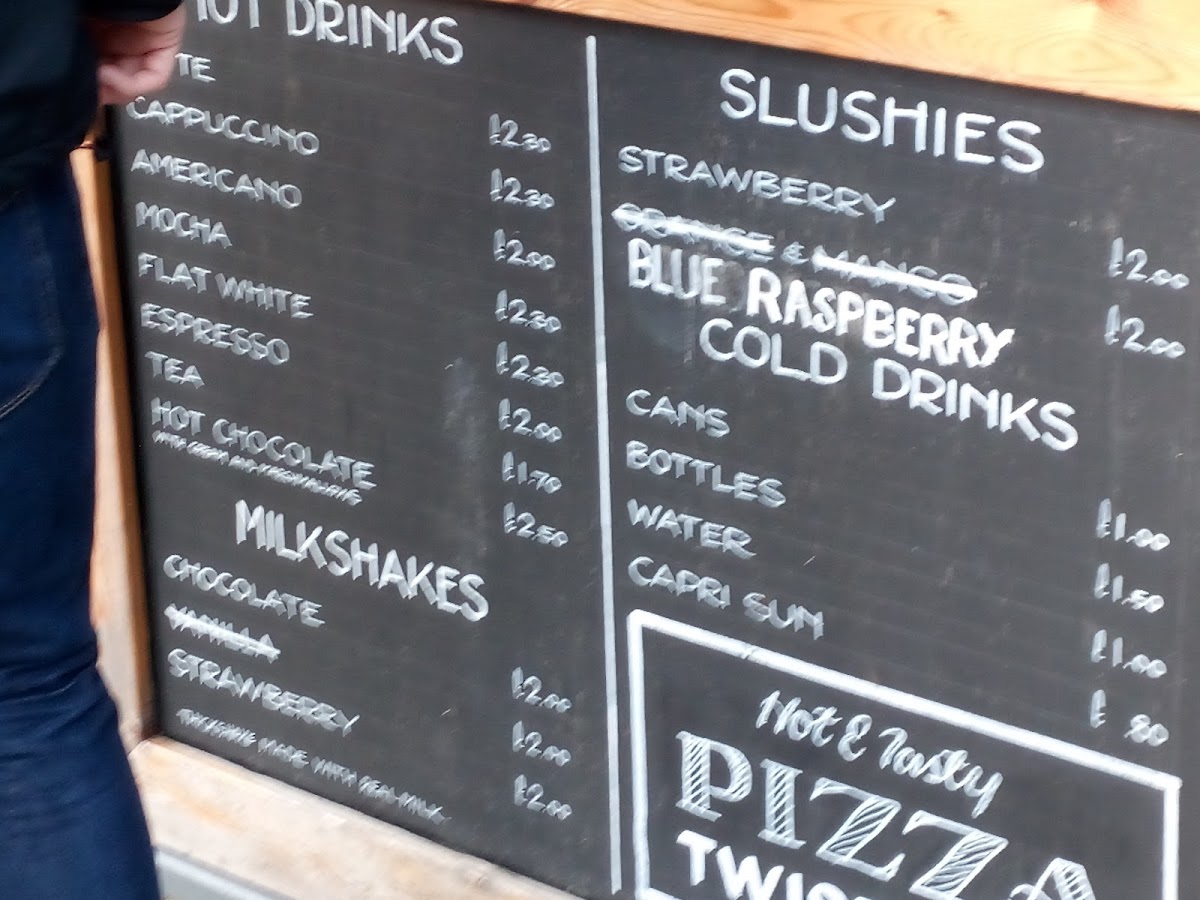 HOT DRINKS
TE
CAPPUCCINO £2.30
AMERICANO £2.30
MOCHA £2.00
FLAT WHITE £2.30
ESPRESSO £2.30
TEA £2.00
HOT CHOCOLATE £1.70
WITH CREAM AND MARSHMALLOWS £2.50
MILKSHAKES
CHOCOLATE £2.00
VANILLA £2.00
STRAWBERRY £2.00
MADE WITH REAL MILK
SLUSHIES
STRAWBERRY £2.00
ORANGE & MANGO £2.00
BLUE RASPBERRY
COLD DRINKS
CANS £1.00
BOTTLES £1.50
WATER £1.00
CAPRI SUN £ 80
Hot & Tasty
PIZZA
TWIS